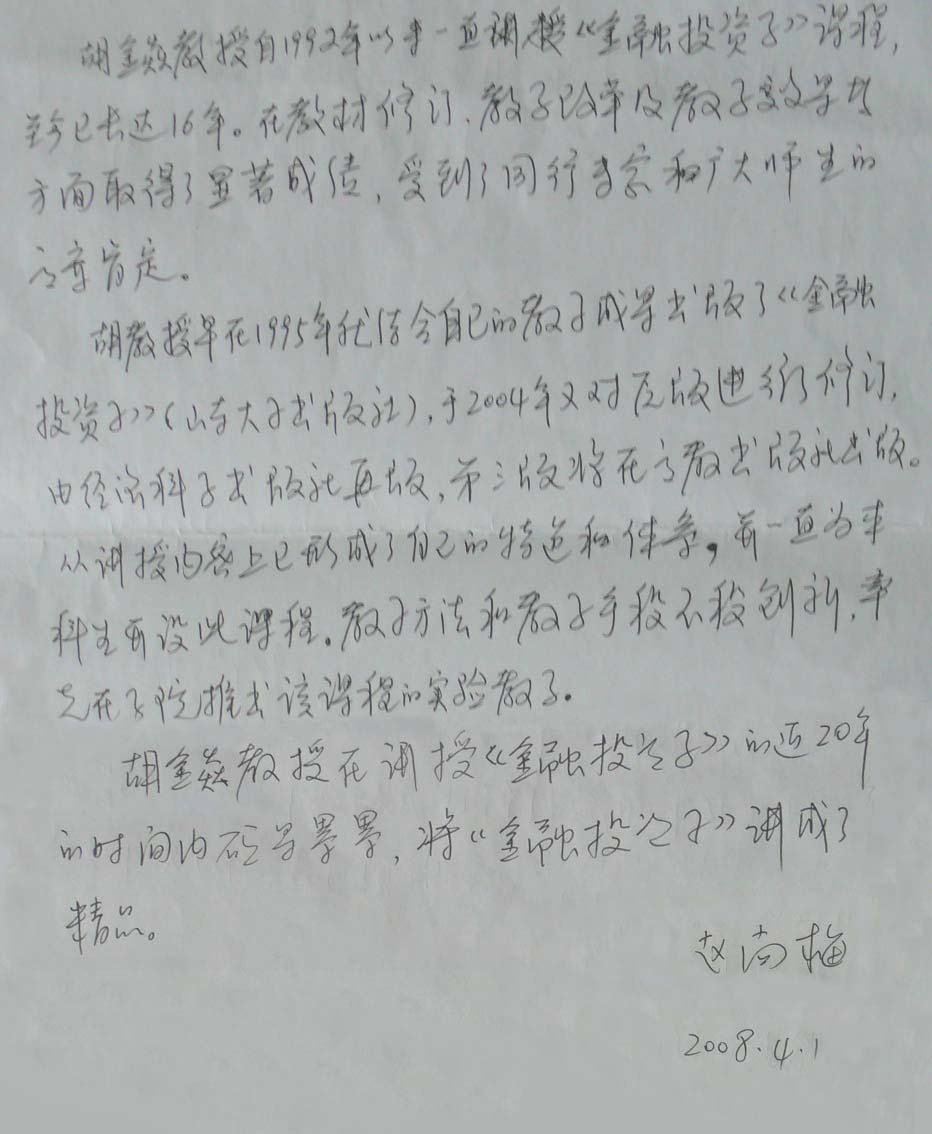 胡金焱教授自1992年以来一直讲授《金融投资学》课程，
至今已长达16年。在教材修订、教学改革及教学文字
方面取得了显著成绩，受到了同行专家和广大师生的
高度肯定。
胡教授早在1995年就结合自己的教学成果出版了《金融
投资学》（山东大学出版社），于2004年又对原版进行修订，
由经济科学出版社再版，第三版将在高教出版社出版。
从讲授内容上已形成了自己的特色和体系，并一直为本
科生开设此课程。教学方法和教学手段不段创新，率
先在学院推出该课程的实验教学。
胡金焱教授在讲授《金融投资学》的近20年
的时间内硕果累累，将《金融投资学》讲成了
精品。
赵尚梅
2008.4.1